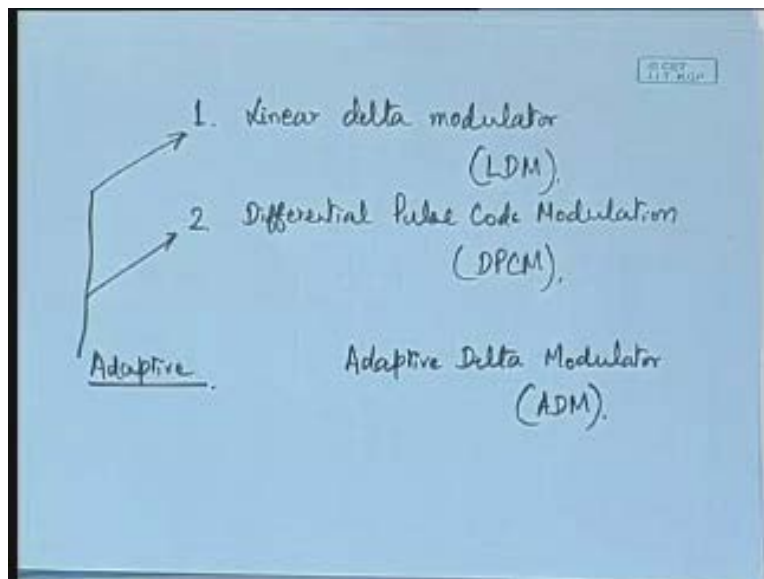 © CET
I.I.T. KGP
1. Linear delta modulator
(LDM).
2. Differential Pulse Code Modulation
(DPCM).
Adaptive. Adaptive Delta Modulator
(ADM).